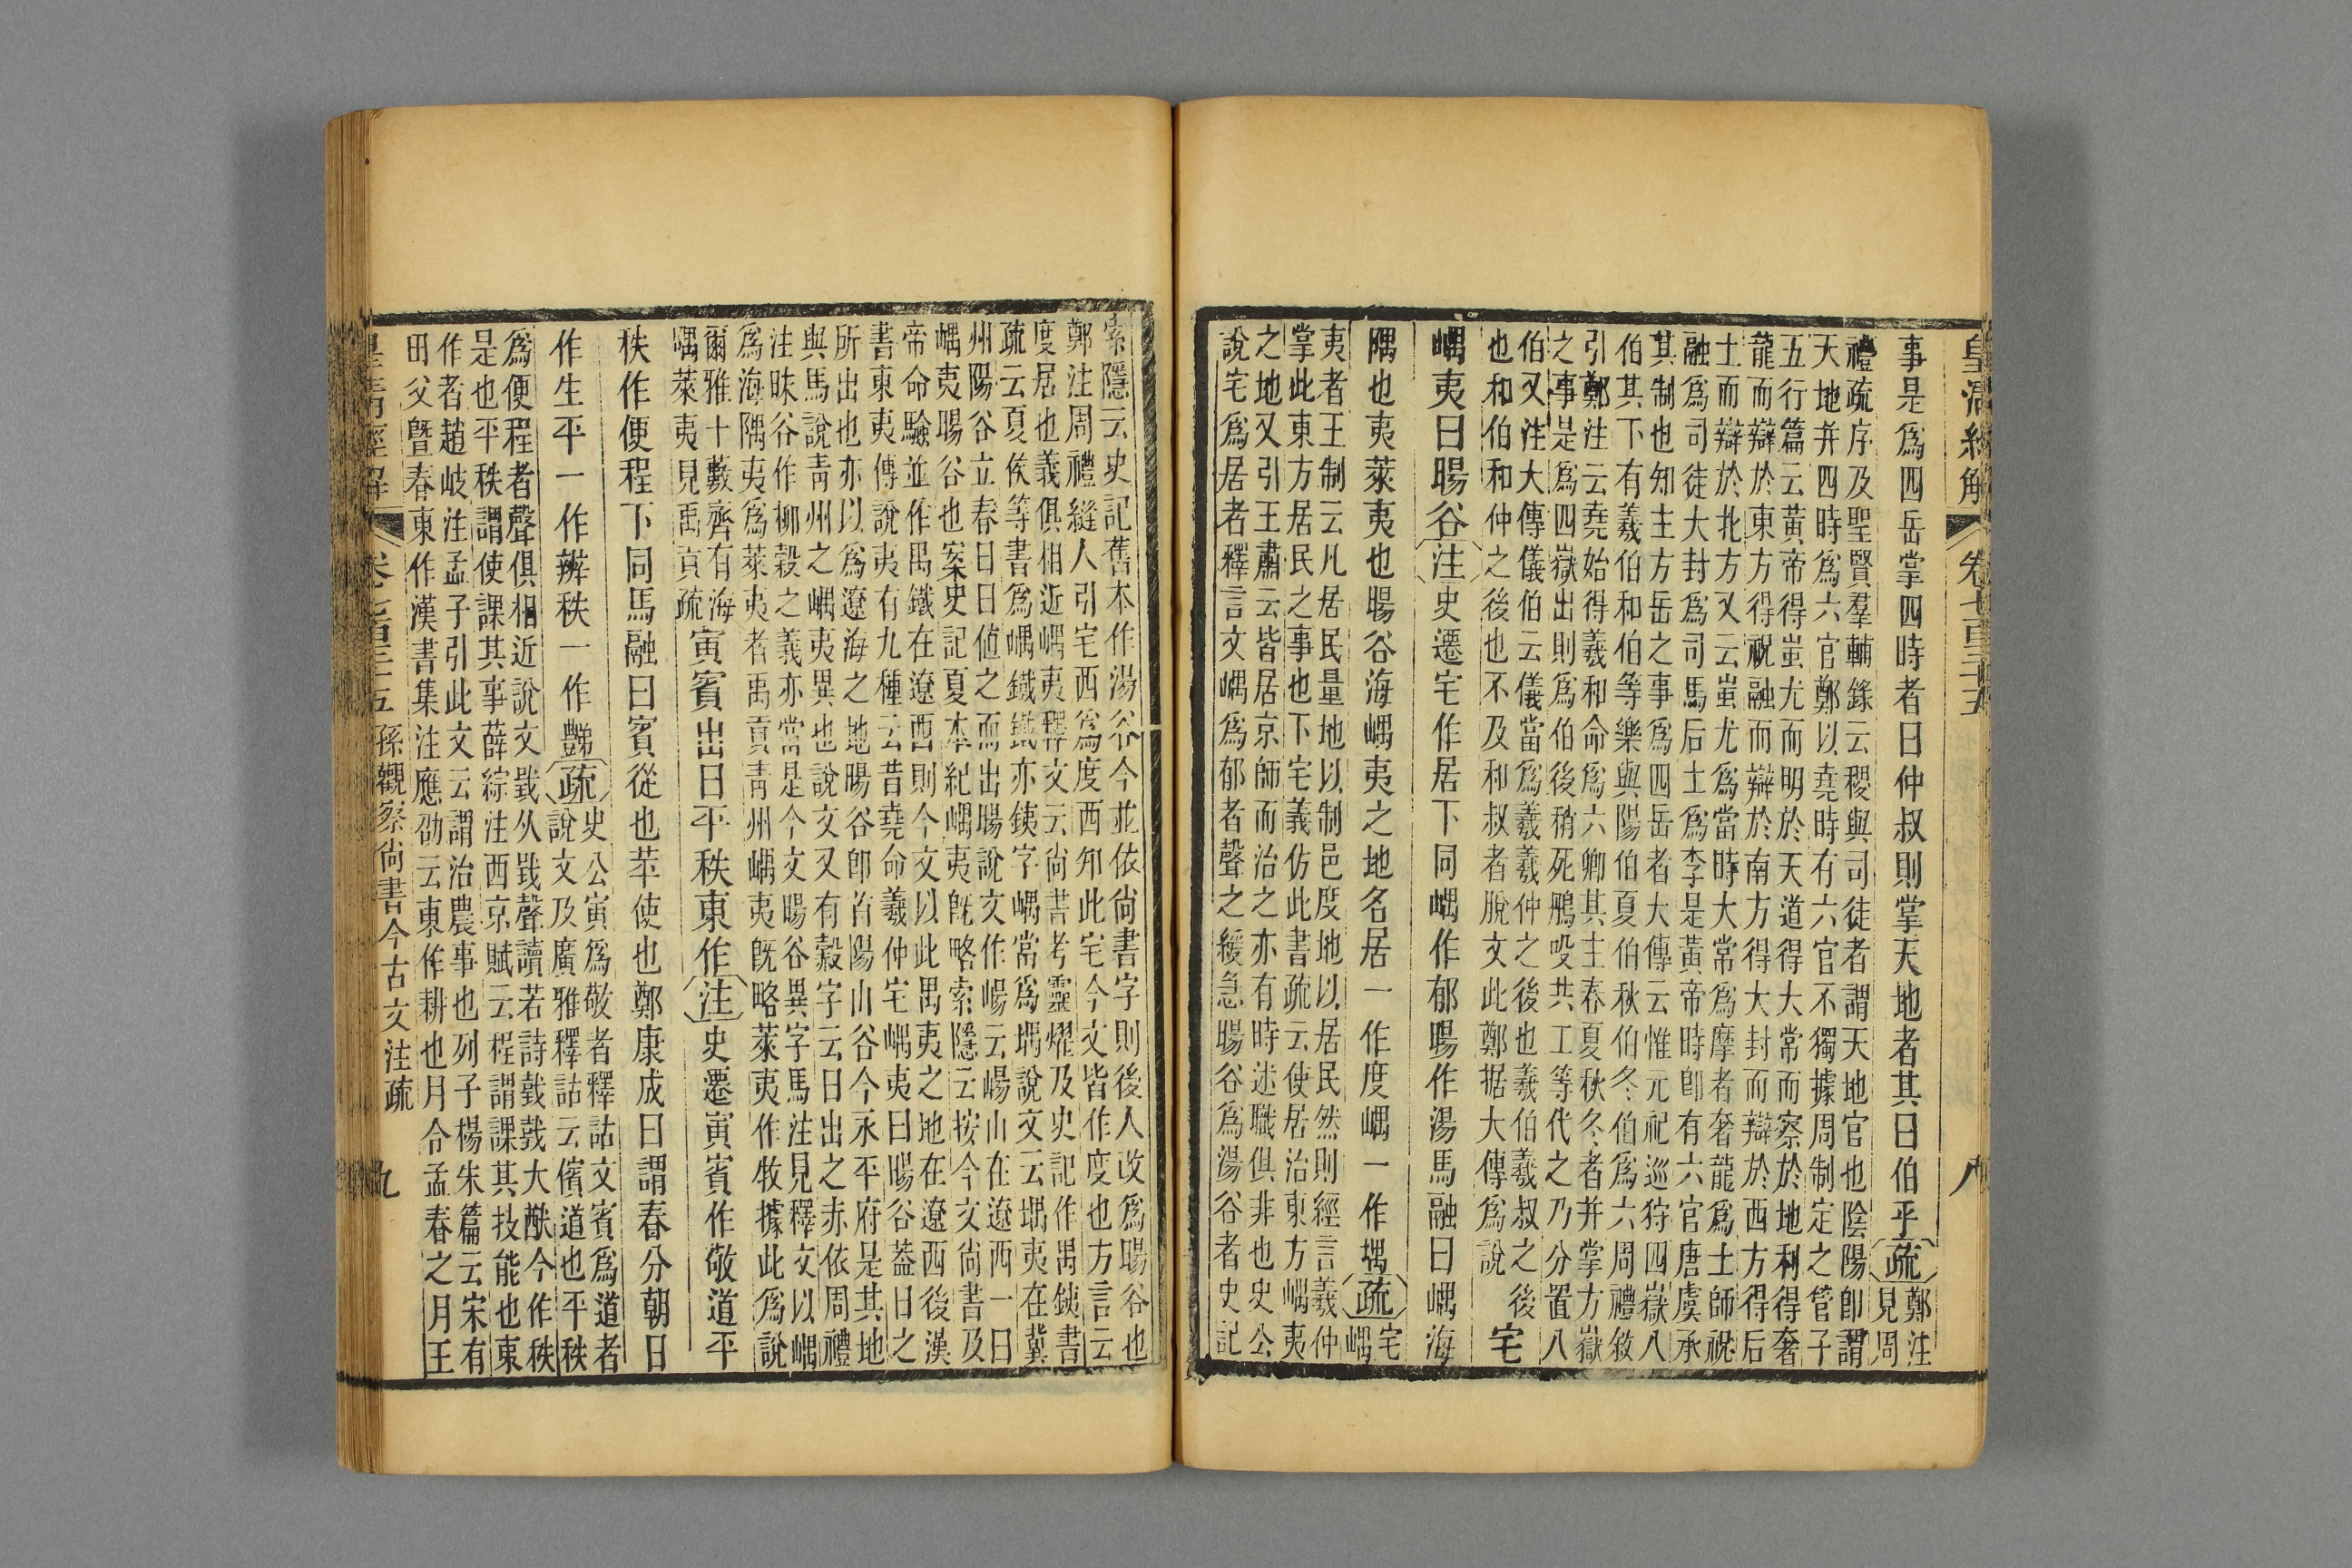 皇清經解 卷七百三十五 八
事是爲四岳掌四時者曰仲叔則掌天地者其曰伯乎疏鄭注
見周
禮疏序及聖賢羣輔錄云稷與司徒者謂天地官也陰陽卽謂
天地并四時爲六官鄭以堯時有六官不獨據周制定之管子
五行篇云黃帝得蚩尤而明於天道得大常而察於地利得奢
龍而辯於東方得祝融而辯於南方得大封而辯於西方得后
土而辯於北方又云蚩尤爲當時大常爲廩者奢龍爲土師祝
融爲司徒大封爲司馬后土爲李是黃帝時卽有六官唐虞承
其制也知主方岳之事爲四岳者大傳云惟元祀巡狩四嶽八
伯其下有羲伯和伯等樂與陽伯夏伯秋伯冬伯爲六周禮敘
引鄭注云堯始得羲和命爲六卿其主春夏秋冬者并掌方嶽
之事是爲四嶽出則爲伯後稍死鴅吺共工等代之乃分置八
伯又注大傳儀伯云儀當爲羲羲仲之後也羲伯羲叔之後
也和伯和仲之後也不及和叔者脫文此鄭据大傳爲說 宅
嵎夷曰暘谷注史遷宅作居下同嵎作郁暘作湯馬融曰嵎海
隅也夷萊夷也暘谷海嵎夷之地名居一作度嵎一作堣疏宅
嵎
夷者王制云凡居民量地以制邑度地以居民然則經言羲仲
掌此東方居民之事也下宅義仿此書疏云使居治東方嵎夷
之地又引王肅云皆居京師而治之亦有時述職俱非也史公
說宅爲居者釋言文嵎爲郁者聲之緩急暘谷爲湯谷者史記
索隱云史記舊本作湯谷今並依尙書字則後人改爲暘谷也
鄭注周禮縫人引宅西爲度西知此宅今文皆作度也方言云
度居也義俱相近嵎夷釋文云尙書考靈燿及史記作禺銕書
疏云夏侯等書爲嵎鐵鐵亦銕字嵎當爲堣說文云堣夷在冀
州陽谷立春日日値之而出暘說文作崵云崵山在遼西一曰
嵎夷暘谷也案史記夏本紀嵎夷旣略索隱云按今文尙書及
帝命驗並作禺鐵在遼西則今文以此禺夷之地在遼西後漢
書東夷傳說夷有九種云昔堯命羲仲宅嵎夷曰暘谷蓋日之
所出也亦以爲遼海之地暘谷卽首陽山谷今永平府是其地
與馬說靑州之嵎夷異也說文又有㝅字云日出之赤依周禮
注昧谷作柳穀之義亦當是今文暘谷異字馬注見釋文以嵎
爲海隅夷爲萊夷者禹貢靑州嵎夷旣略萊夷作牧據此爲說
爾雅十藪齊有海
嵎萊夷見禹貢疏 寅賓出日平秩東作注史遷寅賓作敬道平
秩作便程下同馬融曰賓從也苹使也鄭康成曰謂春分朝日
作生平一作辨秩一作豑疏史公寅爲敬者釋詁文賓爲道者
說文及廣雅釋詁云儐道也平秩
爲便程者聲俱相近說文戥从戥聲讀若詩戥戥大猷今作秩
是也平秩謂使課其事薛綜注西京賦云程謂課其技能也東
作者趙岐注孟子引此文云謂治農事也列子楊朱篇云宋有
田父暨春東作漢書集注應劭云東作耕也月令孟春之月王
皇清經解 卷七百三十五 孫觀察尙書今古文注疏 九